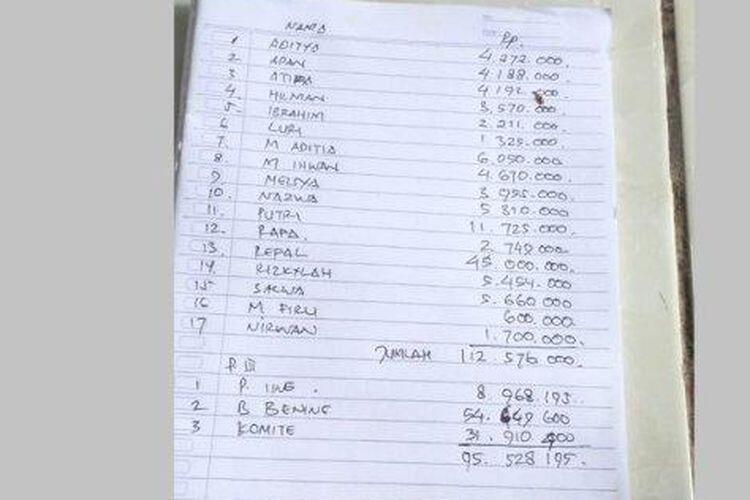 NAMA Rp.
1 ADITYA 4.272.000.
2 APAN 4.188.000.
3 ATIKA 4.192.000.
4 HILMAN 3.570.000.
5. IBRAHIM 2.211.000.
6 LURI 1.325.000.
7. M ADITIA 6.050.000
8. M IHWAN 4.670.000.
9. MELSYA 3.955.000.
10. NAZWA 5.310.000
11. PUTRI 11.725.000
12. RAPA. 2.749.000
13. REPAL 45.000.000.
14. RIZKYLAH 5.454.000
15 SALWA 5.660.000
16 M FIRLI 600.000.
17 NIRWAN 1.700.000.
JUMLAH 112 576 000.
P. III
1 P. IKE . 8.968.195.
2 B BENING 54.649 600
3 KOMITE 31.910 400
95. 528 195.